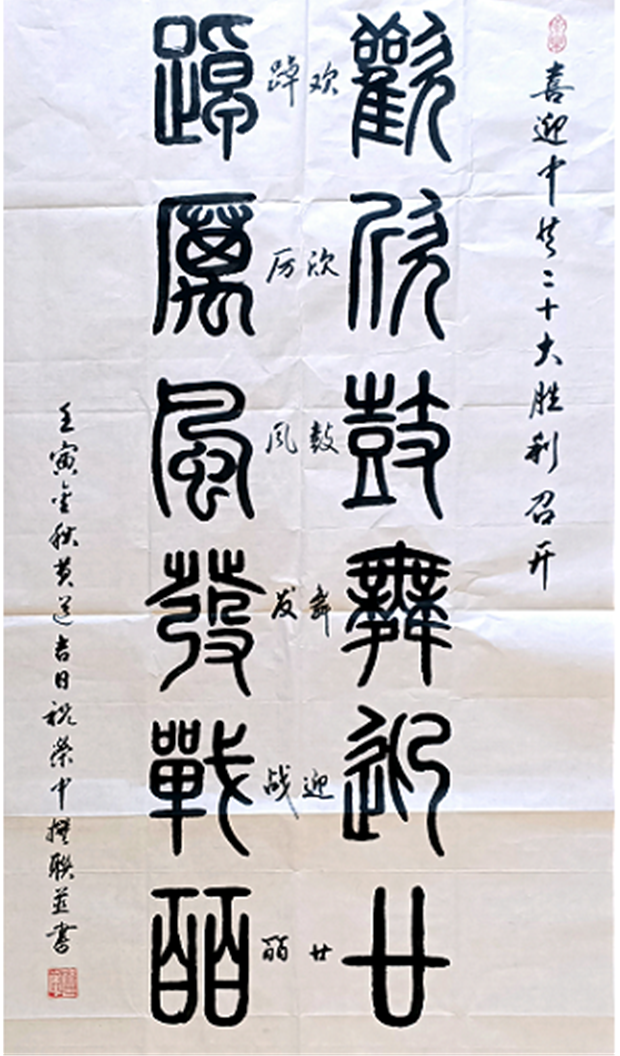 喜迎中共二十大胜利召开
歡欣鼓舞迎廿
欢欣鼓舞迎廿
踔厉风发战皕
踔厲風發戰皕
壬寅金秋黄道吉日榮中撰联並書